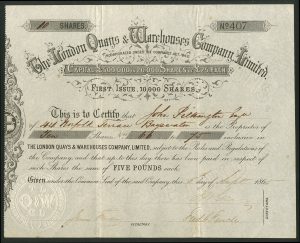 10 SHARES. No 407
The London Quays & Warehouses Company, Limited
CAPITAL £500,000 IN 20,000 SHARES OF £25 EACH
FIRST ISSUE, 10,000 SHARES.
This is to Certify that John Pilkington Esqr
of Norfolk Terrace Bayswater is the Proprietor of
Ten Shares
THE LONDON QUAYS & WAREHOUSES COMPANY, LIMITED, subject to the Rules and Regulations of
the Company, and that up to this day there has been paid in respect of
such Shares the sum of FIVE POUNDS each.
Given under the Common Seal of the said Company, this day of Sept 186